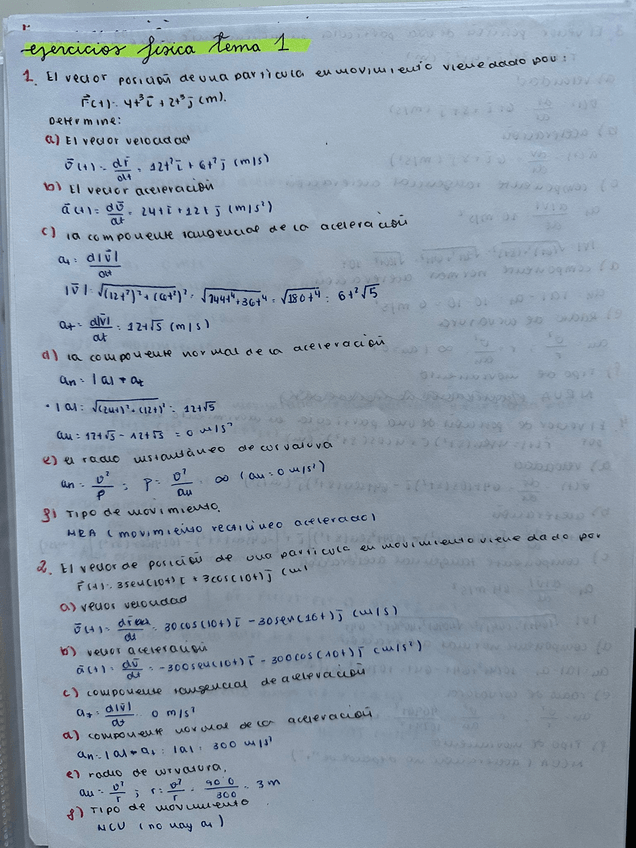 ejercicios física tema 1
1. El vector posición de una partícula en movimiento viene dado por:
r⃗(t) = 4t³ i⃗ + 2t³ j⃗ (m).
Determine:
a) El vector velocidad
v⃗(t) = dr⃗/dt = 12t² i⃗ + 6t² j⃗ (m/s)
b) El vector aceleración
a⃗(t) = dv⃗/dt = 24t i⃗ + 12t j⃗ (m/s²)
c) la componente tangencial de la aceleración
at = d|v⃗|/dt
|v⃗| = √(12t²)² + (6t²)² = √144t⁴ + 36t⁴ = √180t⁴ = 6t²√5
at = d|v⃗|/dt = 12t√5 (m/s)
d) la componente normal de la aceleración
an = |a| - at
· |a| = √(24t)² + (12t)² = 12t√5
an = 12t√5 - 12t√5 = 0 m/s²
e) el radio instantáneo de curvatura
an = v²/ρ ; ρ = v²/an = ∞ (an = 0 m/s²)
f) Tipo de movimiento.
MRA (movimiento rectilíneo acelerado)
2. El vector de posición de una partícula en movimiento viene dado por
r⃗(t) = 3sen(10t) i⃗ + 3cos(10t) j⃗ (m)
a) vector velocidad
v⃗(t) = dr⃗/dt = 30cos(10t) i⃗ - 30sen(10t) j⃗ (m/s)
b) vector aceleración
a⃗(t) = dv⃗/dt = -300sen(10t) i⃗ - 300cos(10t) j⃗ (m/s²)
c) componente tangencial de aceleración
at = d|v⃗|/dt = 0 m/s²
d) componente normal de la aceleración
an = |a| - at = |a| = 300 m/s²
e) radio de curvatura.
an = v²/r ; r = v²/r = 900/300 = 3 m
f) Tipo de movimiento
MCU (no hay at)